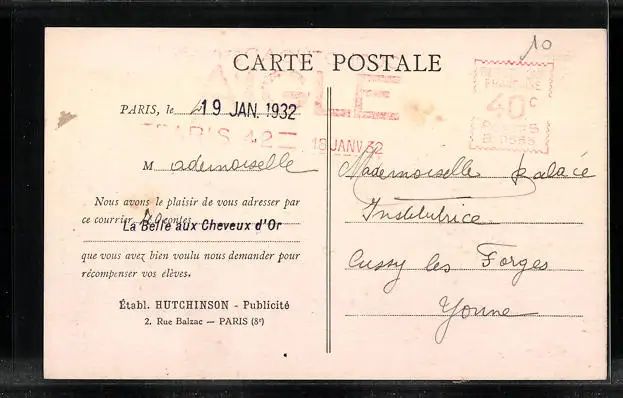 10
CARTE POSTALE
AIGLE
40 c
PARIS, le 19 JAN. 1932
PARIS 42 18 JANV 32
Mademoiselle
Nous avons le plaisir de vous adresser par
ce courrier 20 contes
La Belle aux Cheveux d'Or
que vous avez bien voulu nous demander pour
récompenser vos élèves.
Établ. HUTCHINSON - Publicité
2. Rue Balzac — PARIS (8e)
Mademoiselle Palacé
Institutrice
Cussy les Forges
Yonne